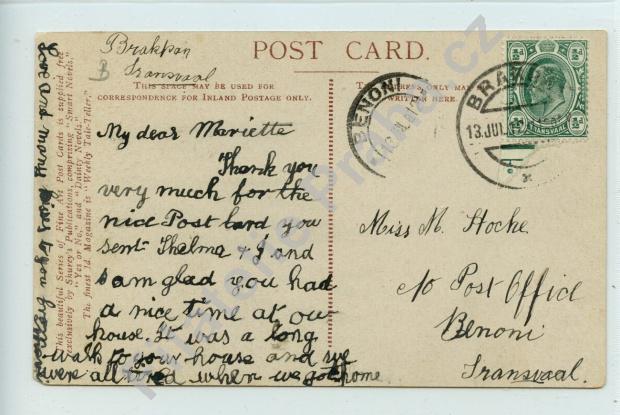 Brakpan
Transvaal
POST CARD.
THIS SPACE MAY BE USED FOR
CORRESPONDENCE FOR INLAND POSTAGE ONLY.
WRITTEN HERE.
My dear Mariette
Thank you
very much for the
nice Post Card you
sent Thelma & I and
I am glad you had
a nice time at our
house. It was a long
walk to your house and we
were all tired when we got home
Love and many kisses to you from
This beautiful Series of Fine Art Post Cards is supplied free
exclusively by Shurey's Publications, comprising "Smart Novels,"
"Yes or No," and "Dainty Novels."
The finest 1d. Magazine is "Weekly Tale-Teller."
BENONI
BRAKPAN
13 JUL
TRANSVAAL
Miss M. Hocke
c/o Post Office
Benoni
Transvaal.